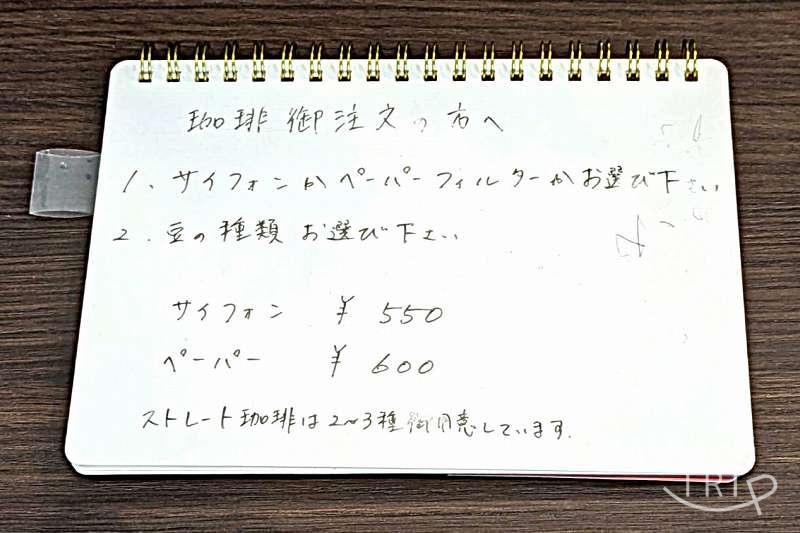 珈琲御注文の方へ
1. サイフォンかペーパーフィルターかお選び下さい
2. 豆の種類 お選び下さい
サイフォン ¥ 550
ペーパー ¥ 600
ストレート珈琲は2~3種御用意しています.
TRIP